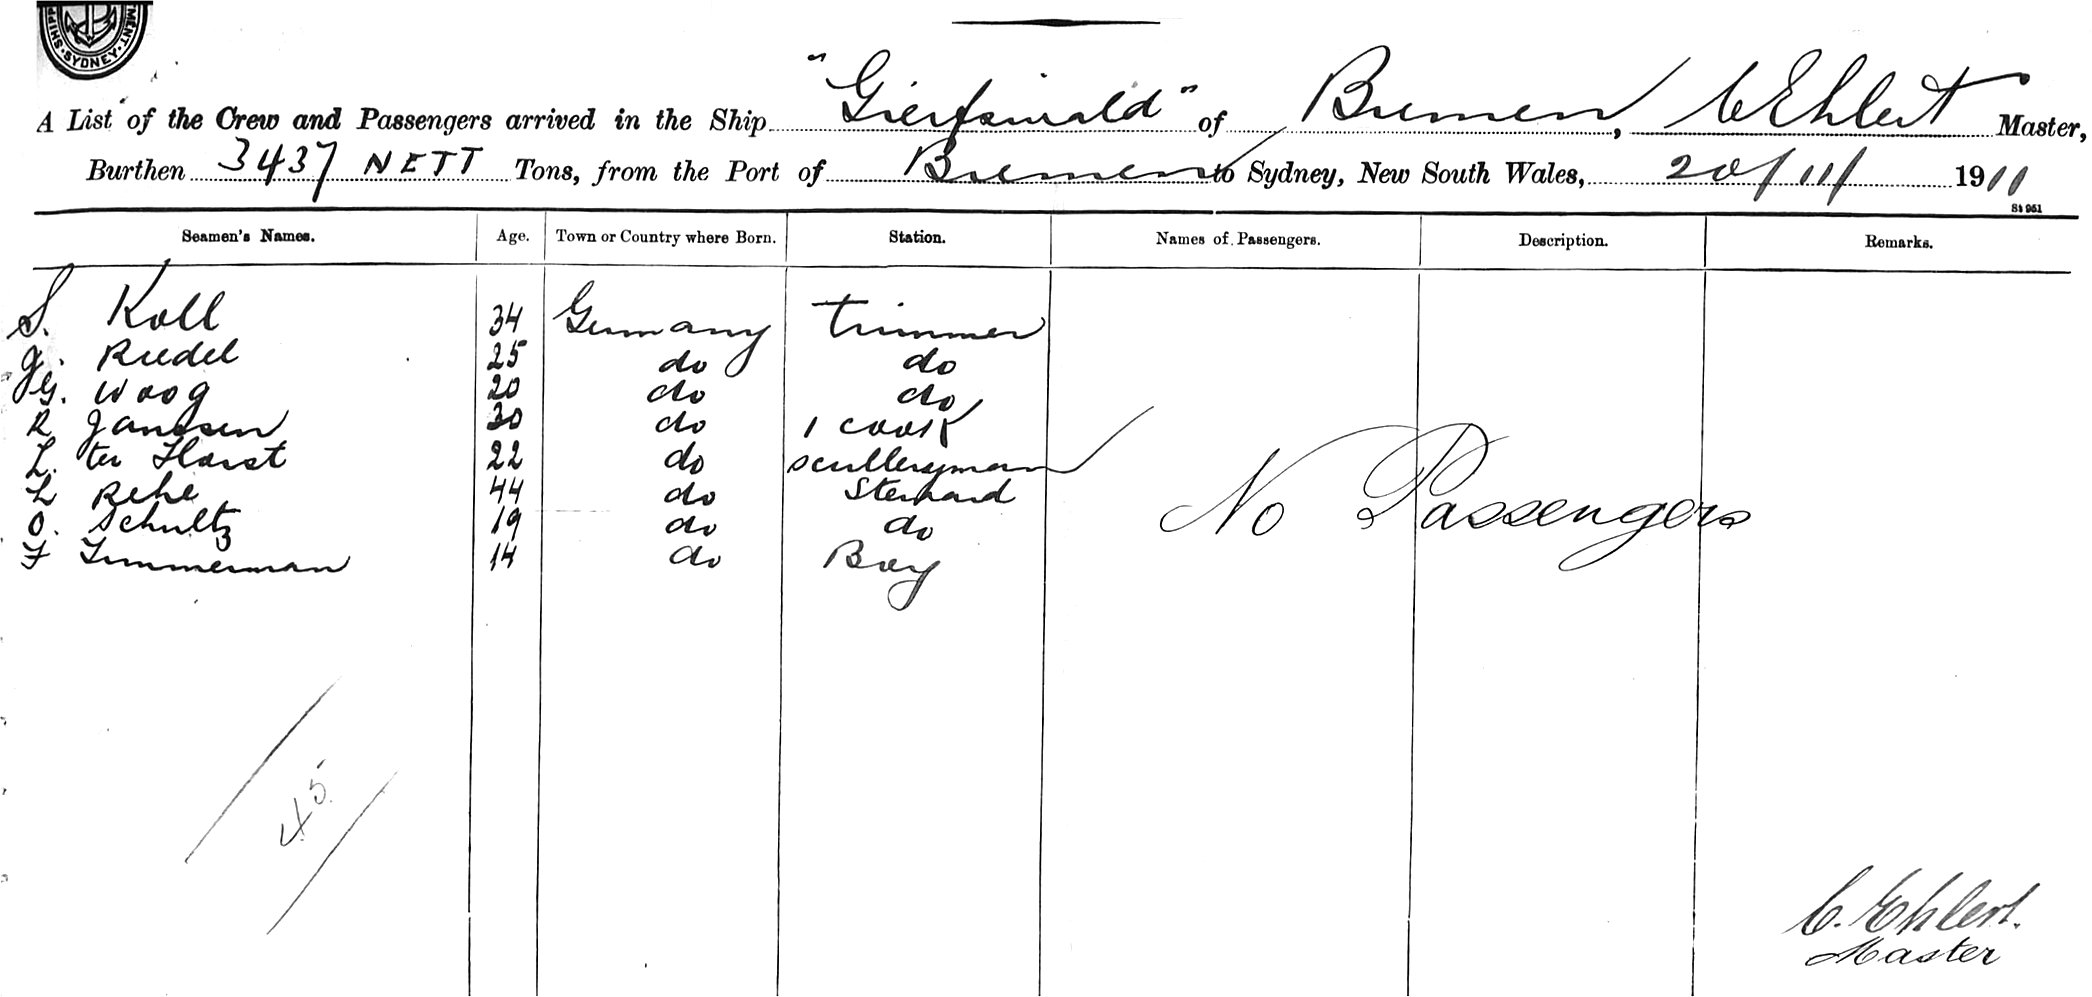 SHIPP MENT · SYDNEY ·
A List of the Crew and Passengers arrived in the Ship "Grierfswald" of Bremen, C Ehlert Master,
Burthen 3437 NETT Tons, from the Port of Bremen to Sydney, New South Wales, 20/11/ 1911
St 951
Seamen's Names. Age. Town or Country where Born. Station. Names of Passengers. Description. Remarks.
S. Koll 34 Germany trimmer
J. Riedel 25 do do
G. Woog 20 do do
R Janssen 30 do 1 cook
L. ter Horst 22 do sculleryman
L Rehe 44 do Steward
O. Schultz 19 do do
F Timmerman 14 do Boy
No Passengers
45
C. Ehlert.
Master